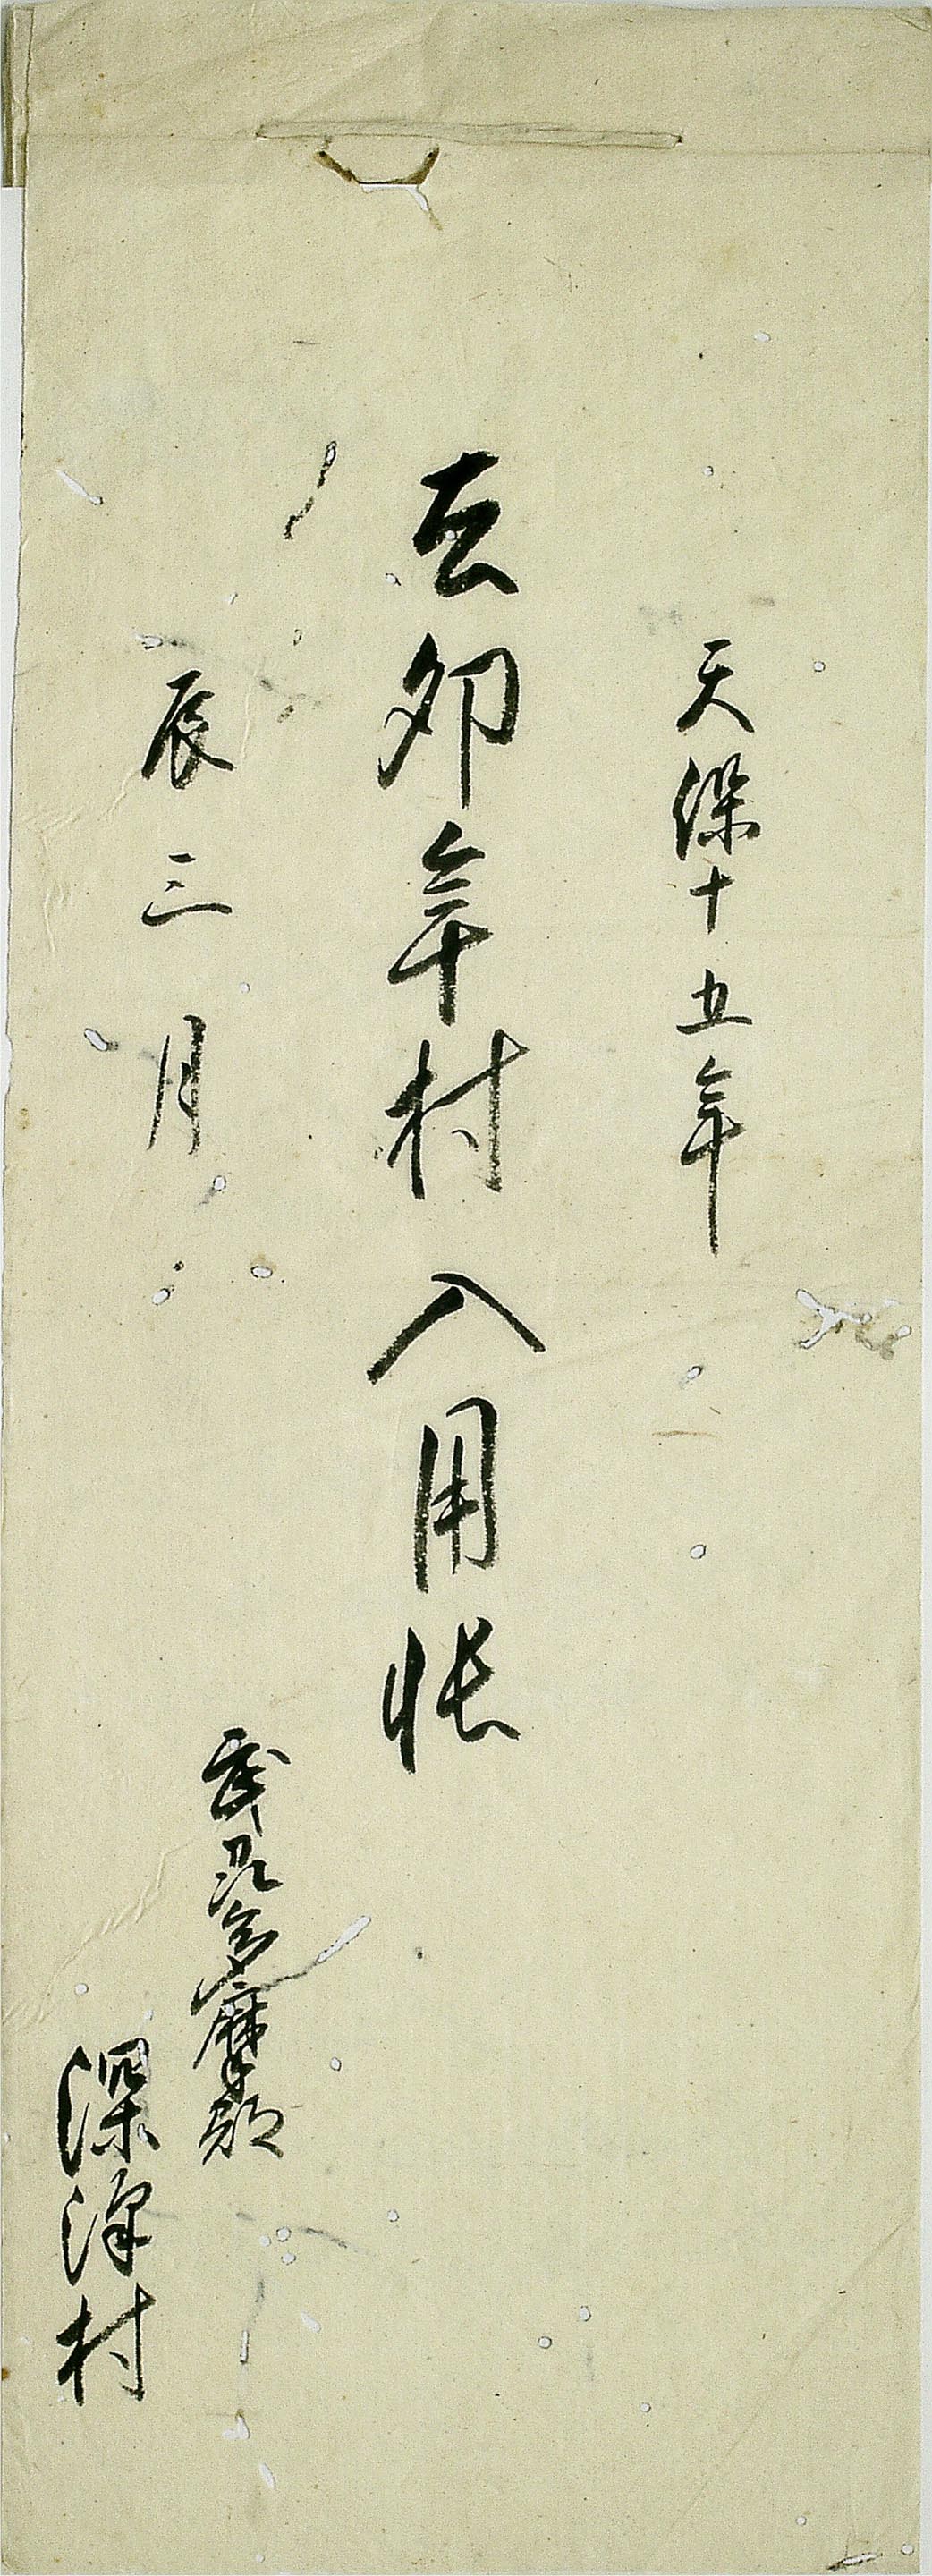 天保十五年
去卯年村入用帳
辰三月
武州多摩郡
深沢村